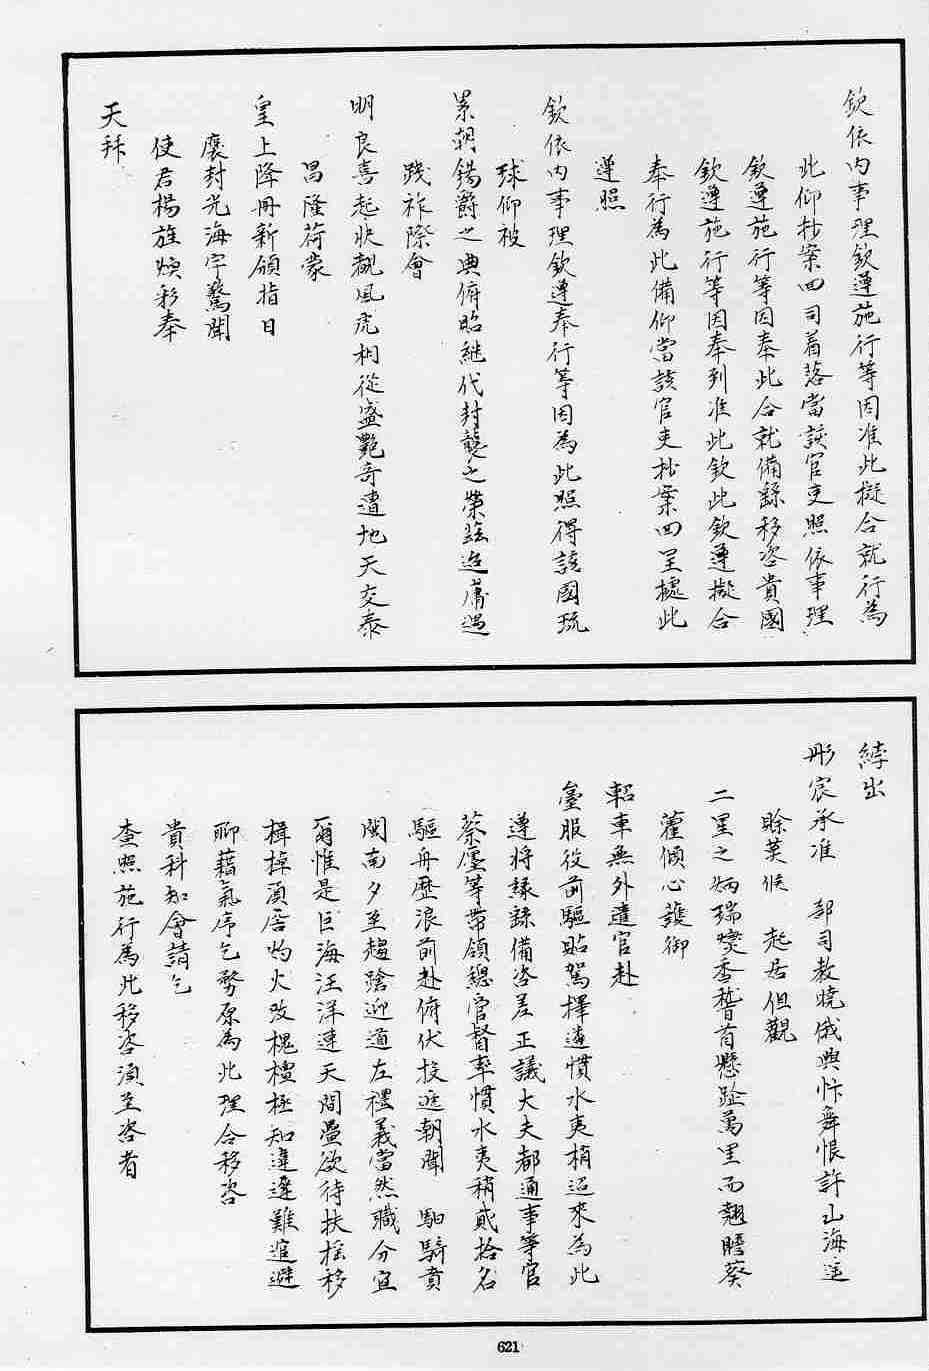 欽依內事理欽遵施行等因准此擬合就行為
此仰抄案回司着落當該官吏照依事理
欽遵施行等因奉此合就備錄移咨貴國
欽遵施行等因奉列准此欽此欽遵擬合
奉行為此備仰當該官吏抄案回呈據此
遵照
欽依內事理欽遵奉行等因為此照得該國琉
球仰被
累朝錫爵之典俯昭繼代封襲之榮茲迨膚遇
踐祚際會
明良喜起狀覩風虎相從盛艷奇遭地天交泰
昌隆荷蒙
皇上降冊新頒指日
褒封光海宇驚聞
使君楊旌煥彩奉
天拜
綍出
彤宸承准 部司教曉俄興忭舞悵許山海迢
賒莫候 起居但觀
二星之炳瑞爕香稽首懸趾萬里而翹瞻葵
藿傾心護御
軺車無外遣官赴
臺服役前驅貼駕擇遴慣水夷梢迎來為此
遵將緣錄備咨差正議大夫都通事等官
蔡廛等帶領總官督率慣水夷稍貳拾名
驅舟歷浪前赴俯伏投逓朝聞 馹騎賁
閩南夕至趨蹌迎道左禮義當然職分宜
爾惟是巨海汪洋連天間疊欲待扶搖移
楫棹湏居灼火改槐檀極知違遲難逭避
聊藉氣序乞勢原為此理合移咨
貴科知會請乞
查照施行為此移咨湏至咨者
621